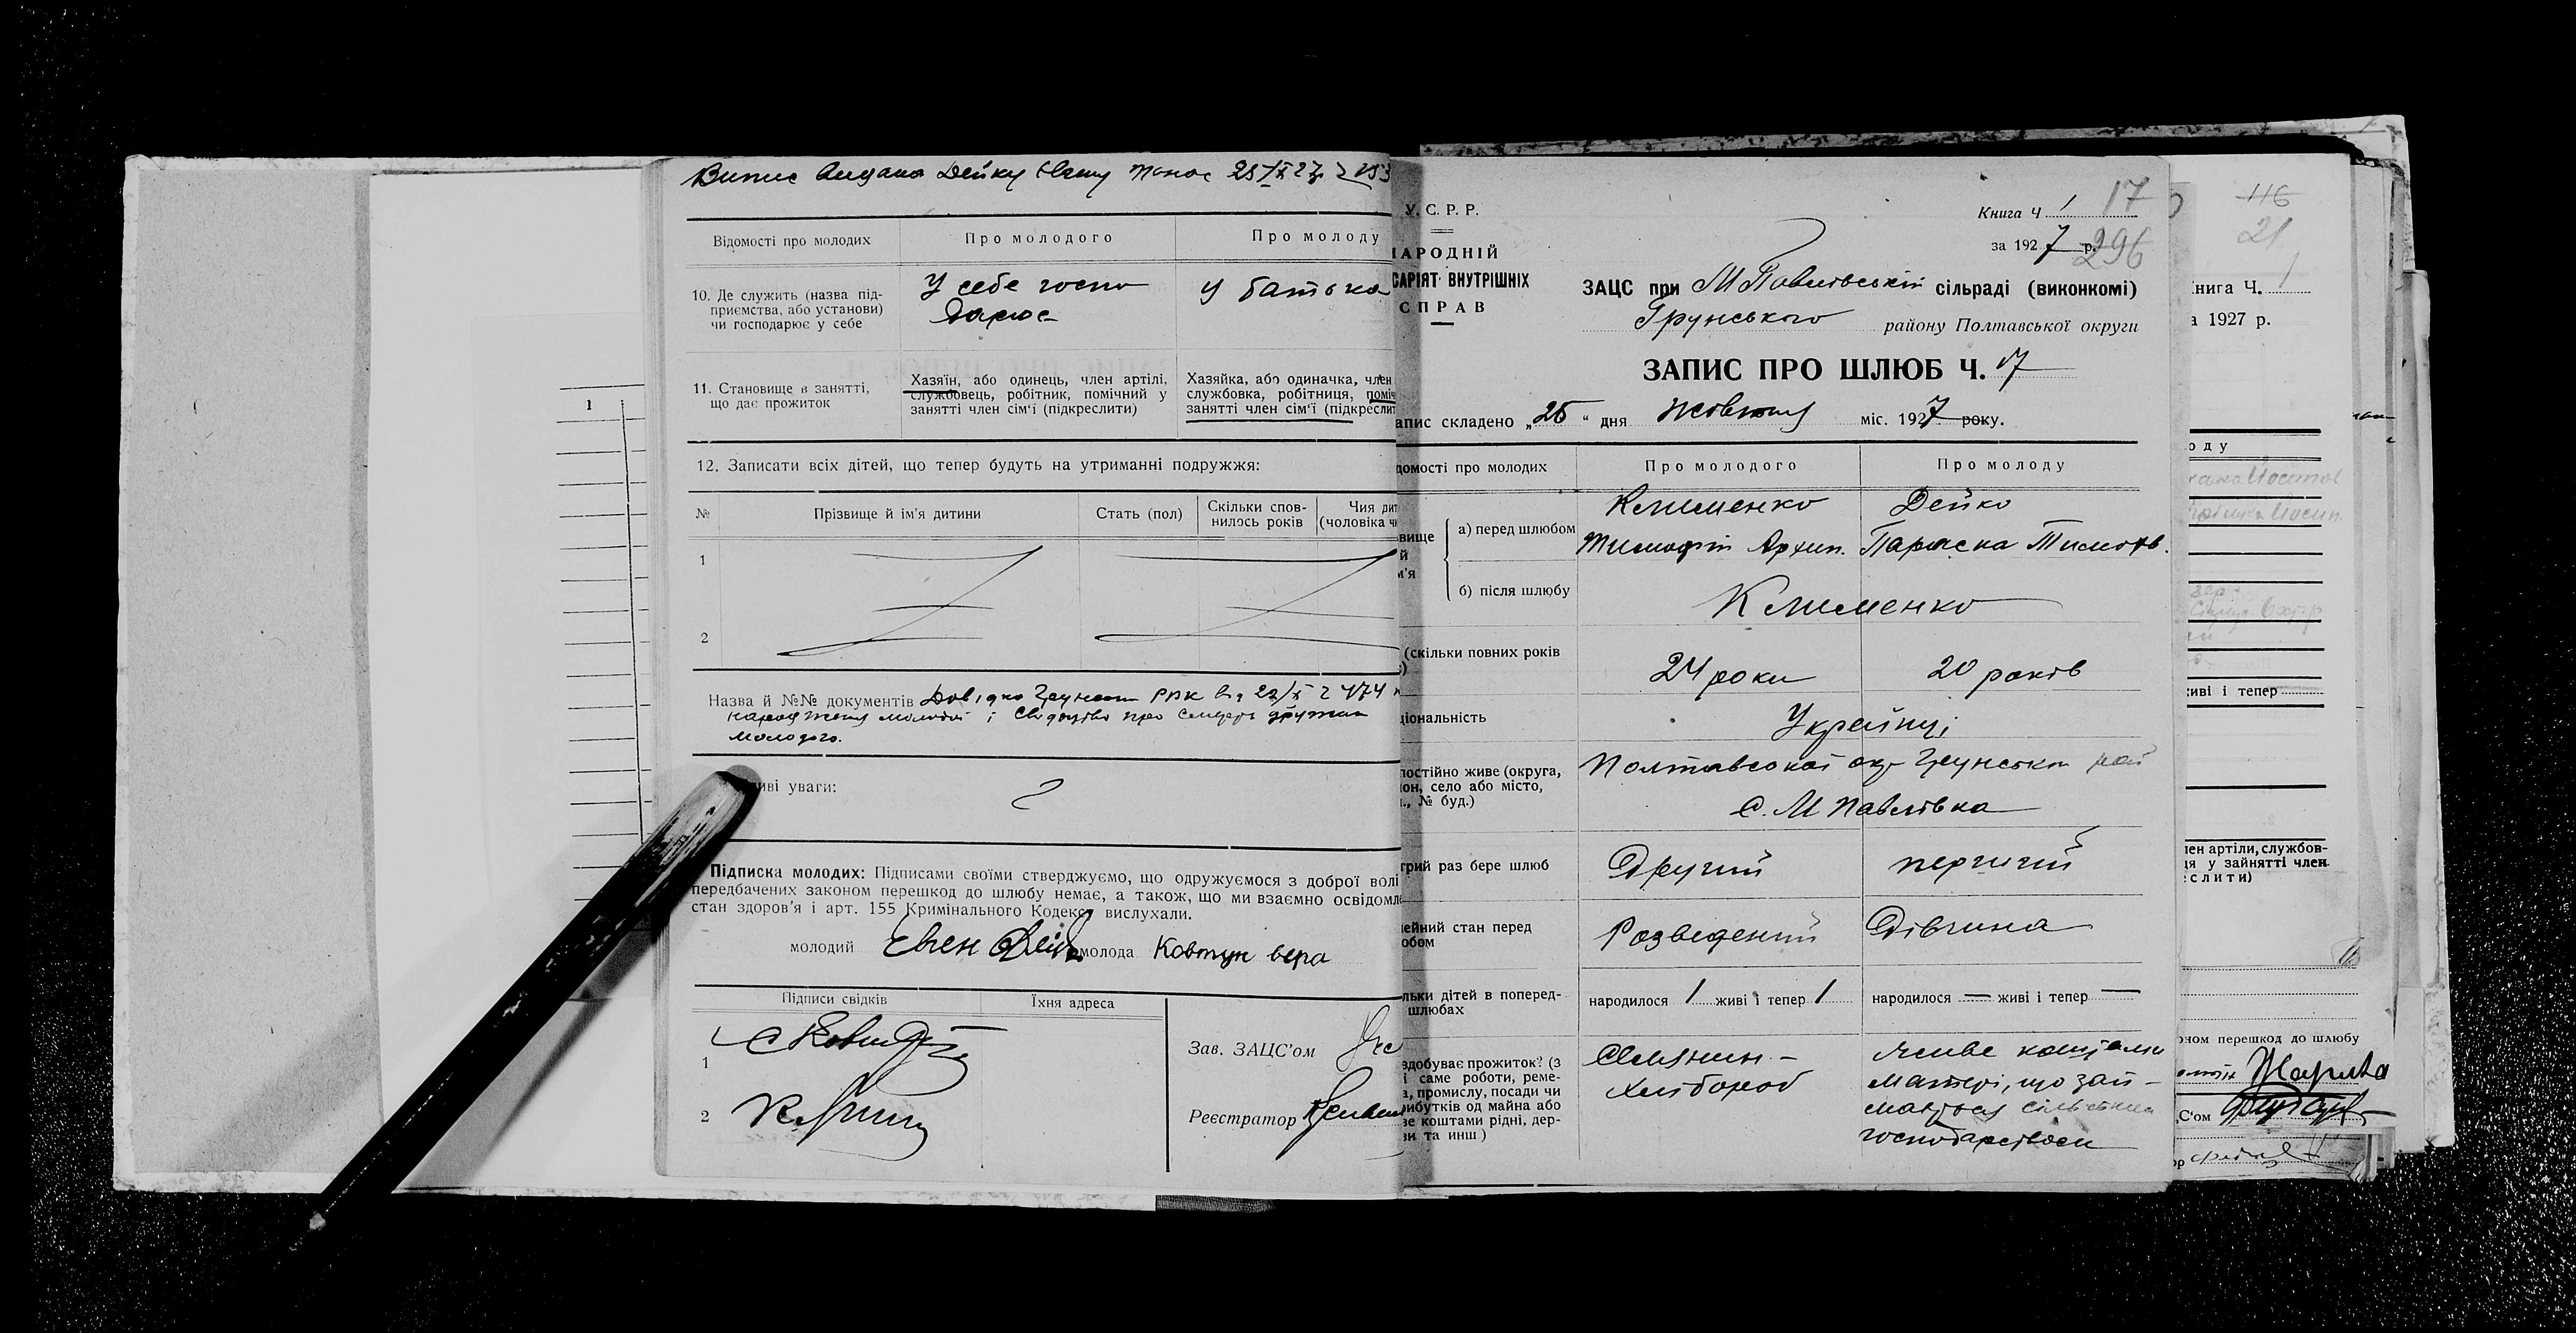 Випис видана Дейку Євг Панас 25/X 27р
Відомості про молодих
Про молодого
Про молоду
10. Де служить (назва під-
приємства, або установи)
чи господарює у себе
У себе госпо
дарює
у батька
11. Становище в занятті,
що дає прожиток
Хазяїн, або одинець, член артілі,
службовець, робітник, помічний у
занятті член сім'ї (підкреслити)
Хазяйка, або одиначка, член
службовка, робітниця, поміч
занятті член сім'ї (підкреслит
12. Записати всіх дітей, що тепер будуть на утриманні подружжя:
№
Прізвище й ім'я дитини
Стать (пол)
Скільки спов-
нилось років
Чия дит
(чоловіка чи
1
2
Назва й №№ документів Довідка Грунськ РВК від 22/X 474
народження молодої і свідоцтво про смерть дружини
молодого.
иві уваги:
Підписка молодих: Підписами своїми стверджуємо, що одружуємося з доброї волі
передбачених законом перешкод до шлюбу немає, а також, що ми взаємно освідомл
стан здоров'я і арт. 155 Кримінального Кодексу вислухали.
молодий
молода Ковтун вера
Підписи свідків
Їхня адреса
1
2
Зав. ЗАЦС'ом
Реєстратор
У. С. Р. Р.
НАРОДНІЙ
САРІЯТ ВНУТРІШНІХ
СПРАВ
Книга Ч 1 17
за 1927 р. 296
ЗАЦС при М Павлівській сільраді (виконкомі)
Грунського району Полтавської округи
ЗАПИС ПРО ШЛЮБ Ч. 17
апис складено „25“ дня жовтня міс. 1927 року.
домості про молодих
Про молодого
Про молоду
вище
й
м'я
а) перед шлюбом
Клименко
Тимофій Архип.
Дейко
Параска Тимофв.
б) після шлюбу
Клименко
(скільки повних років
24 роки
20 років
ціональність
Українці
постійно живе (округа,
он, село або місто,
., № буд.)
Полтавської окр Грунськи рай
с. М Павлівка
трий раз бере шлюб
Другий
перший
ейний стан перед
юбом
Розведений
Дівчина
льки дітей в поперед-
шлюбах
народилося 1 живі і тепер 1
народилося — живі і тепер —
здобуває прожиток? (з
і саме роботи, реме-
а, промислу, посади чи
ибутків од майна або
ве коштами рідні, дер-
ви та инш.)
Селянин -
хлібороб
живе коштами
матері, що зай-
мається сільським
господарством
116
21
нига Ч. 1
а 1927 р.
оду
иві і тепер
лен артіли, службов-
ця у зайнятті член
еслити)
ном перешкод до шлюбу
С'ом
ор
1